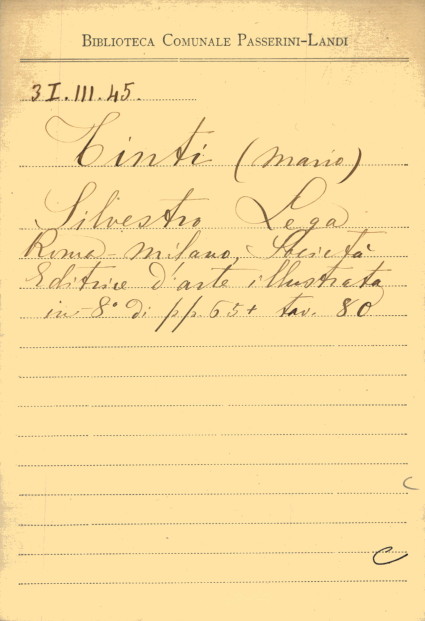 BIBLIOTECA COMUNALE PASSERINI-LANDI
3I.III.45.
Tinti (Mario)
Silvestro Lega
Roma-Milano, Società
Editrice d'arte illustrata
in-8° di pp. 65+ tav. 80
C
C